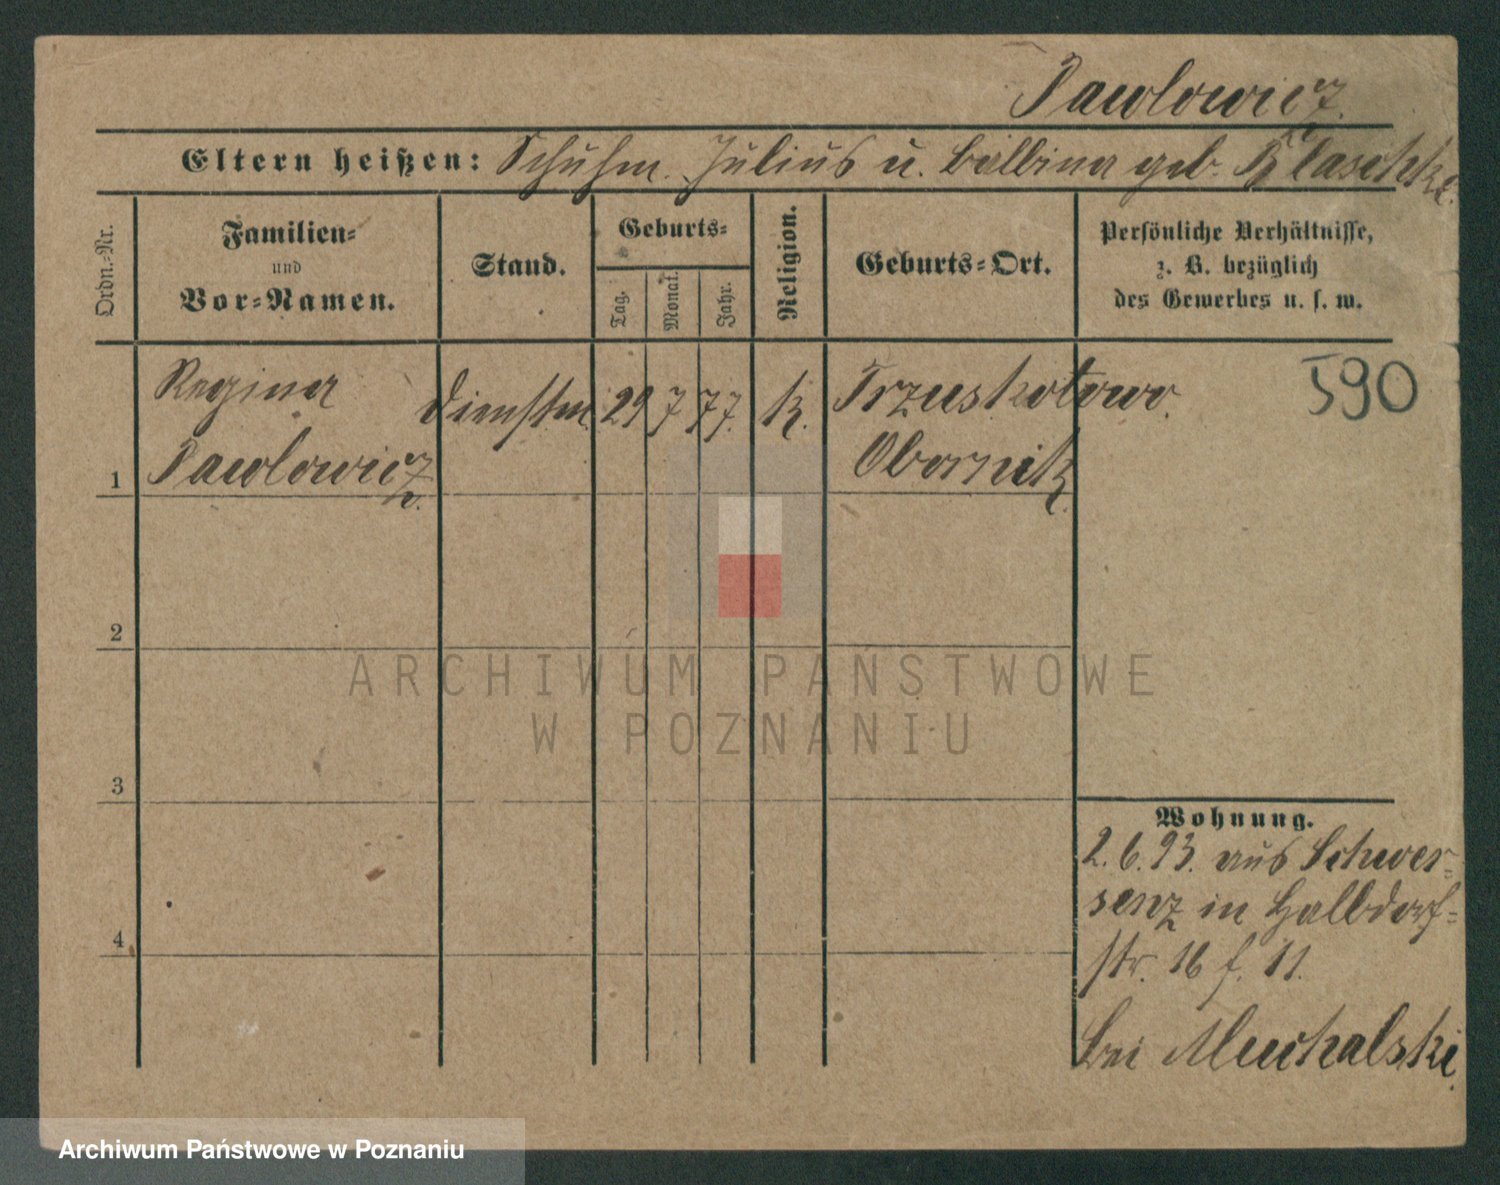 Pawlowicz.
Eltern heißen: Schuhm. Julius u. Balbina geb.
Ordn.-Nr.
Familien-
und
Vor-Namen.
Stand.
Geburts-
Tag.
Monat.
Jahr.
Religion.
Geburts-Ort.
Persönliche Verhältnisse,
z. B. bezüglich
des Gewerbes u. s. w.
1
Regina
Pawlowicz.
Dienstm.
29
7
77.
k.
Trzuskotowo.
Obornik.
590
2
3
4
Wohnung.
2.6.93. aus Schwer-
senz in Halbdorf-
str. 16 f. 11.
bei
ARCHIWUM PAŃSTWOWE
W POZNANIU
Archiwum Państwowe w Poznaniu